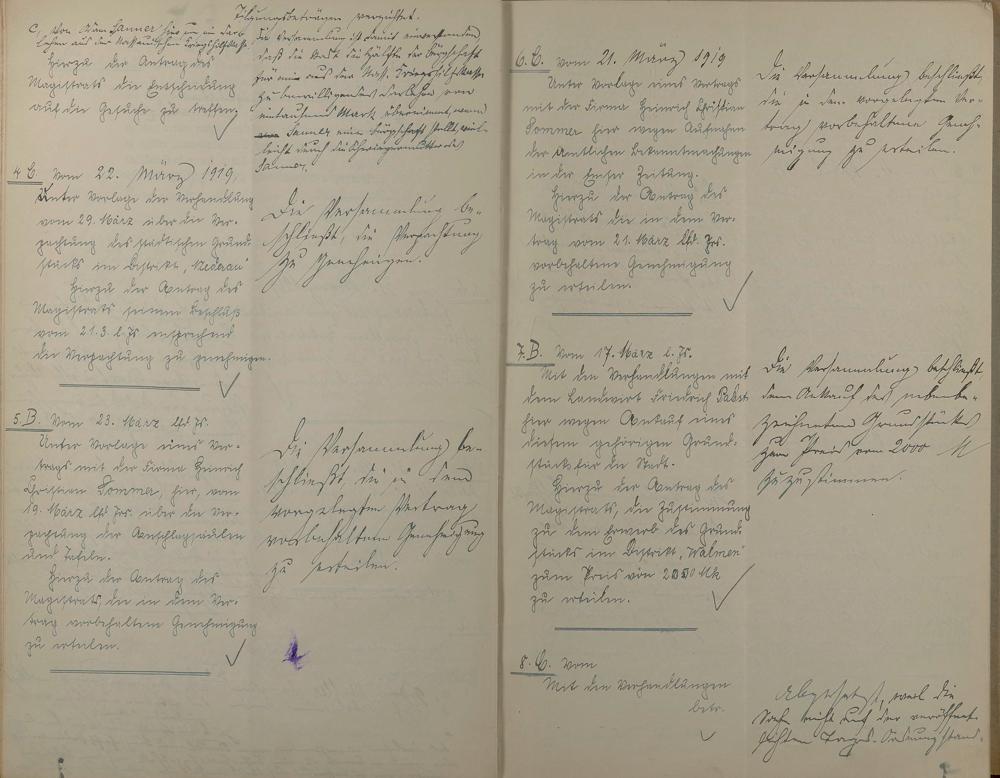 Tilgungsbeträgen verzichtet.
C, von Adam Sanner hier um ein Dar-
lehen aus der Nassauischen Kriegshilfskasse
Hierzu der Antrag des
Magistrats die Entscheidung
auf die Gesuche zu treffen.
Die Versammlung ist damit einverstanden
daß die Stadt die Hälfte der Bürgschaft
für ein aus der Nass. Kriegshilfskasse
zu bewilligendes Darlehen von
eintausend Mark übernimmt, wenn
Sanner eine Bürgschaft stellt, viel-
leicht durch die Schwiegermutter des
Sanner.
4 B. Vom 22. März 1919,
Unter Vorlage der Verhandlung
vom 29. März über die Ver-
pachtung des städtischen Grund-
stücks im Distrikt
Hierzu der Antrag des
Magistrats seinem Beschluß
vom 21.3. l. Js entsprechend
die Verpachtung zu genehmigen.
Die Versammlung be-
schließt, die Verpachtung
zu genehmigen.
5. B. Vom 23. März lfd Js.
Unter Vorlage eines Ver-
trags mit der Firma Heinrich
Christian Sommer, hier, vom
19. März lfd Jrs. über die Ver-
pachtung der Anschlagsäulen
und Tafeln.
Hierzu der Antrag des
Magistrats, die in dem Ver-
trag vorbehaltene Genehmigung
zu erteilen.
Die Versammlung be-
schließt, die in dem
vorgelegten Vertrag
vorbehaltene Genehmigung
zu erteilen.
6. B. vom 21. März 1919
Unter Vorlage eines Vertrags
mit der Firma Heinrich Christian
Sommer hier wegen Aufnahme
der Amtlichen Bekanntmachungen
in der Emser Zeitung.
Hierzu der Antrag des
Magistrats die in dem Ver-
trag vom 21. März lfd. Jrs.
vorbehaltene Genehmigung
zu erteilen.
Die Versammlung beschließt,
die in dem vorgelegten Ver-
trag vorbehaltene Geneh-
migung zu erteilen.
7. B. Vom 17. März l. Js.
Mit den Verhandlungen mit
dem Landwirt Friedrich
hier wegen Ankauf eines
diesem gehörigen Grund-
stücks für die Stadt.
Hierzu der Antrag des
Magistrats, die Zustimmung
zu dem Erwerb des Grund-
stücks im Distrikt
zum Preis von 2000 Mk
zu erteilen.
Die Versammlung beschließt,
dem Ankauf des nebenbe-
zeichneten Grundstücks
zum Preis von 2000 M
zuzustimmen.
8. B. Vom
Mit den Verhandlungen
betr.
Abgesetzt, weil die
Sache nicht auf der veröffent-
lichten Tages-Ordnung stand.